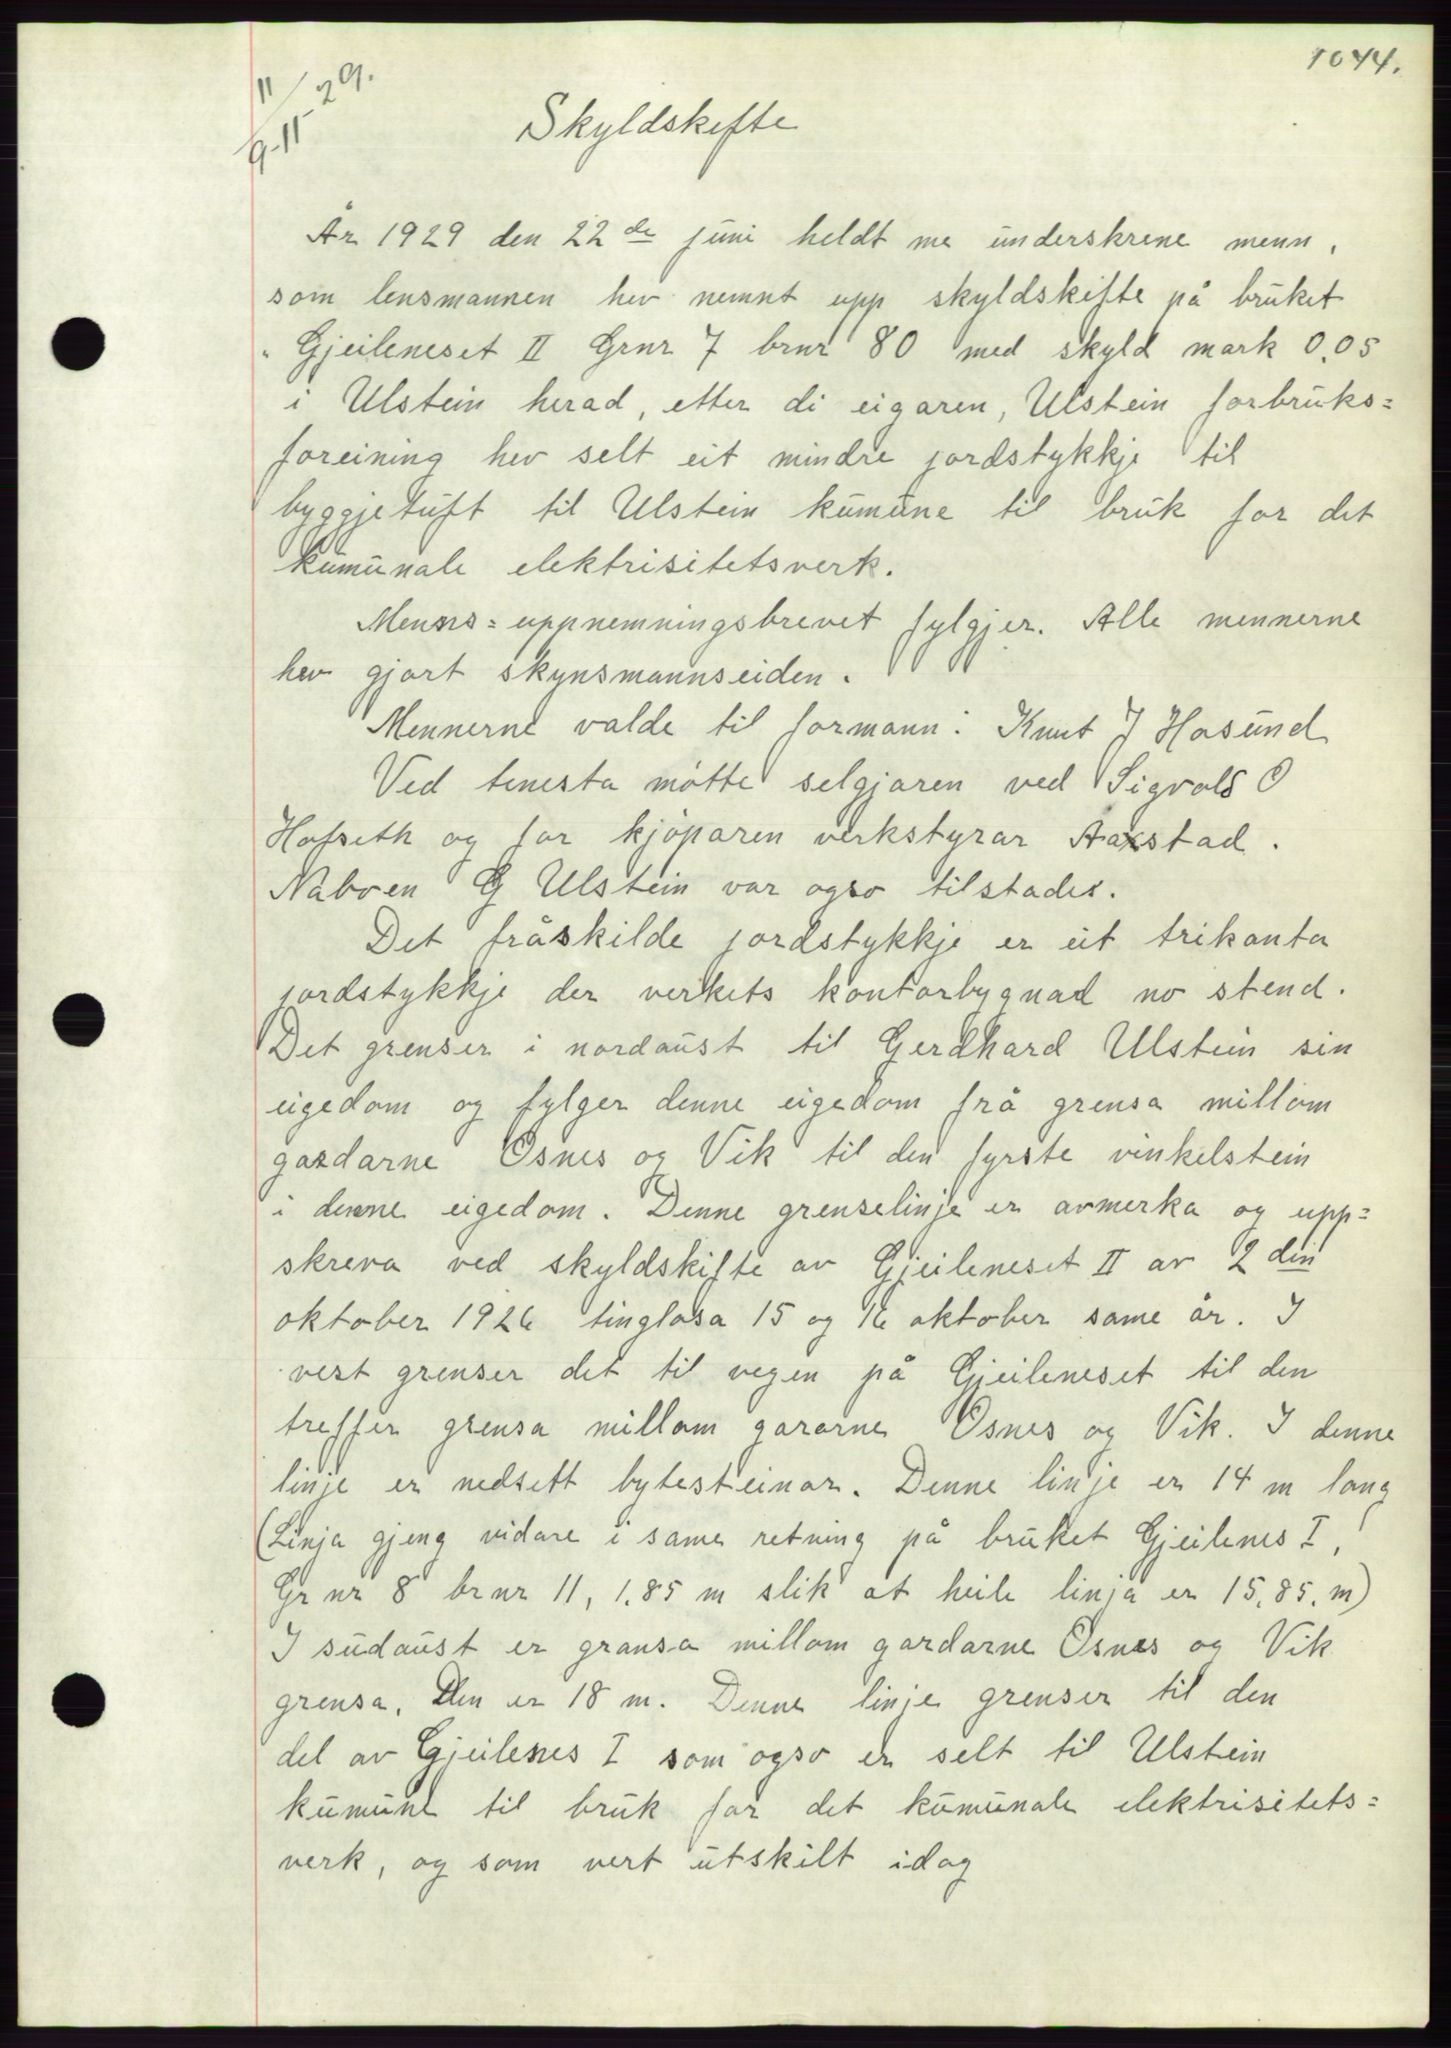 1044.
11/9-11-29.
Skyldskifte
År 1929 den 22de juni heldt me underskrene menn,
som lensmannen hev nemnt upp skyldskifte på bruket
" Gjeileneset II Grnr 7 brnr 80 med skyld mark 0,05
i Ulstein herad, etter di eigaren, Ulstein forbruks=
foreining hev selt eit mindre jordstykkje til
byggjetuft til Ulstein kumune til bruk for det
kumunale elektrisitetsverk.
Menns=uppnemningsbrevet fylgjer. Alle mennerne
hev gjort skynsmannseiden.
Mennerne valde til formann: Knut J Hasund
Ved tenesta møtte selgjaren ved Sigvald O
Hofseth og for kjøparen verkstyrar Aakstad.
Naboen G Ulstein var ogso tilstades.
Det fråskilde jordstykkje er eit trikanta
jordstykkje der verkets kontorbygnad no stend.
Det grenser i nordaust til Gerdhard Ulstein sin
eigedom og fylger denne eigedom frå grensa millom
gardarne Osnes og Vik til den fyrste vinkelstein
i denne eigedom. Denne grenselinje er avmerka og upp=
skreva ved skyldskifte av Gjeileneset II av 2 din
oktober 1926 tinglosa 15 og 16 oktober same år. I
vest grenser det til vegen på Gjeileneset til den
treffer grensa millom gararne Osnes og Vik. I denne
linje er nedsett bytesteinar. Denne linje er 14 m lang
(Linja gjeng vidare i same retning på bruket Gjeilenes I,
Gr nr 8 br nr 11, 1.85 m slik at heile linja er 15,85. m)
I sudaust er gransa millom gardarne Osnes og Vik
grensa. Den er 18 m. Denne linje grenser til den
del av Gjeilenes I som ogso er selt til Ulstein
kumune til bruk for det kumunale elektrisitets=
verk, og som vert utskilt idag